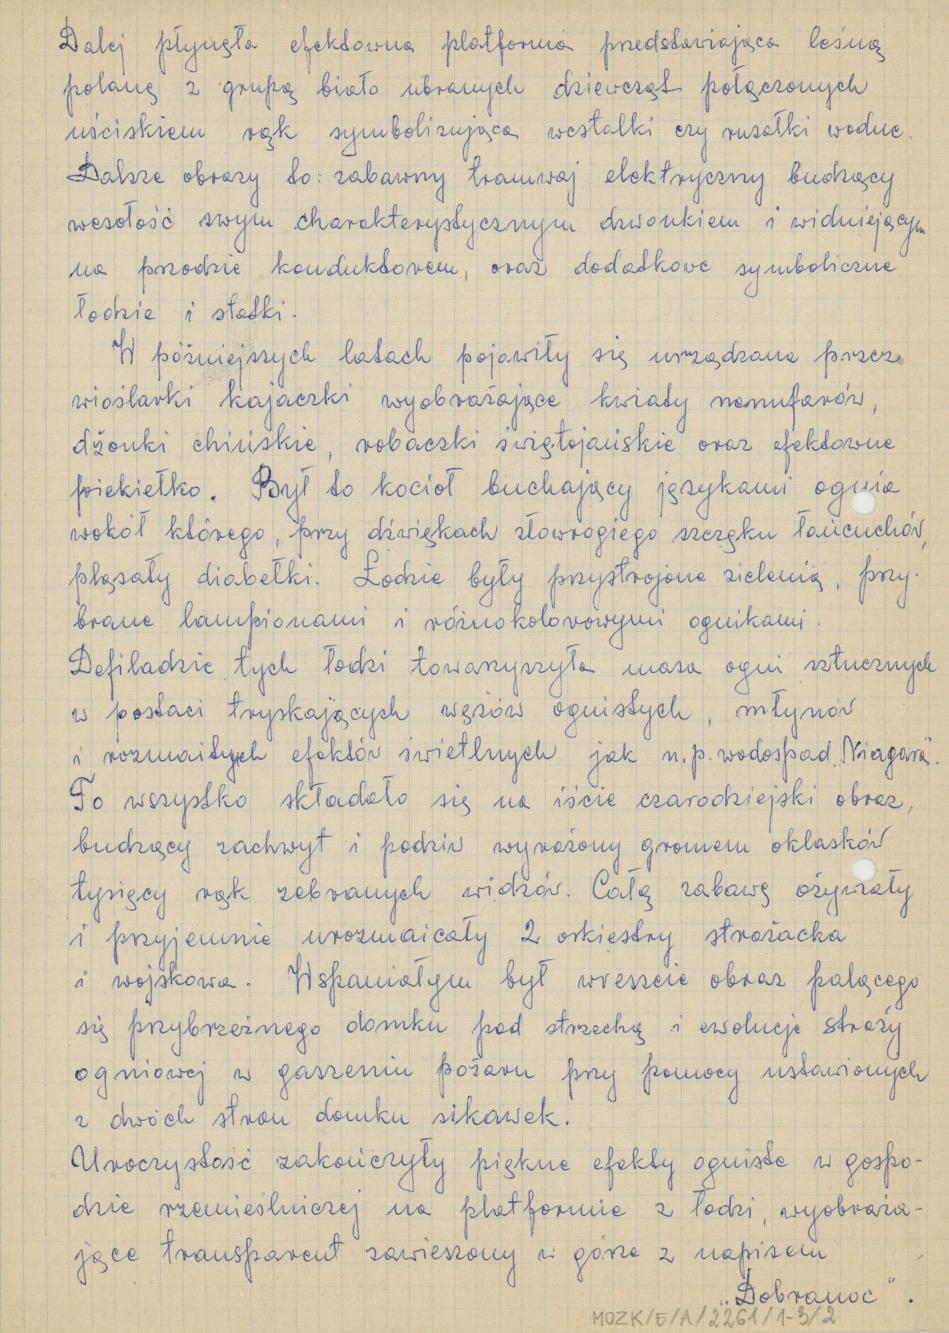 Dalej płynęła efektowna platforma przedstawiająca leśną
polanę z grupą biało ubranych dziewcząt połączonych
uściskiem rąk symbolizująca westalki czy rusałki wodne.
Dalsze obrazy to: zabawny tramwaj elektryczny budzący
wesołość swym charakterystycznym dzwonkiem i widniejącym
na przodzie konduktorem, oraz dodatkowe symboliczne
łodzie i statki.
W późniejszych latach pojawiły się urządzane przez
wioślarki kajaczki wyobrażające kwiaty nenufarów,
dżonki chińskie, robaczki świętojańskie oraz efektowne
piekiełko. Był to kocioł buchający językami ognia
wokół którego, przy dźwiękach złowrogiego szczęku łańcuchów,
pląsały diabełki. Łodzie były przystrojone zielenią, przy-
brane lampionami i różnokolorowymi ognikami.
Defiladzie tych łodzi towarzyszyła masa ogni sztucznych
w postaci tryskających wężów ognistych, młynów
i rozmaitych efektów świetlnych jak n.p. wodospad „Niagara”.
To wszystko składało się na iście czarodziejski obraz,
budzący zachwyt i podziw wyrażony gromem oklasków
tysięcy rąk zebranych widzów. Całą zabawę ożywiały
i przyjemnie urozmaicały 2 orkiestry strażacka
i wojskowa. Wspaniałym był wreszcie obraz palącego
się przybrzeżnego domku pod strzechą i ewolucje straży
ogniowej w gaszeniu pożaru przy pomocy ustawionych
z dwóch stron domku sikawek.
Uroczystość zakończyły piękne efekty ogniste w gospo-
dzie rzemieślniczej na platformie z łodzi, wyobraża-
jące transparent zawieszony w górze z napisem
„Dobranoc”.
MOZK/E/A/2261/1-3/2